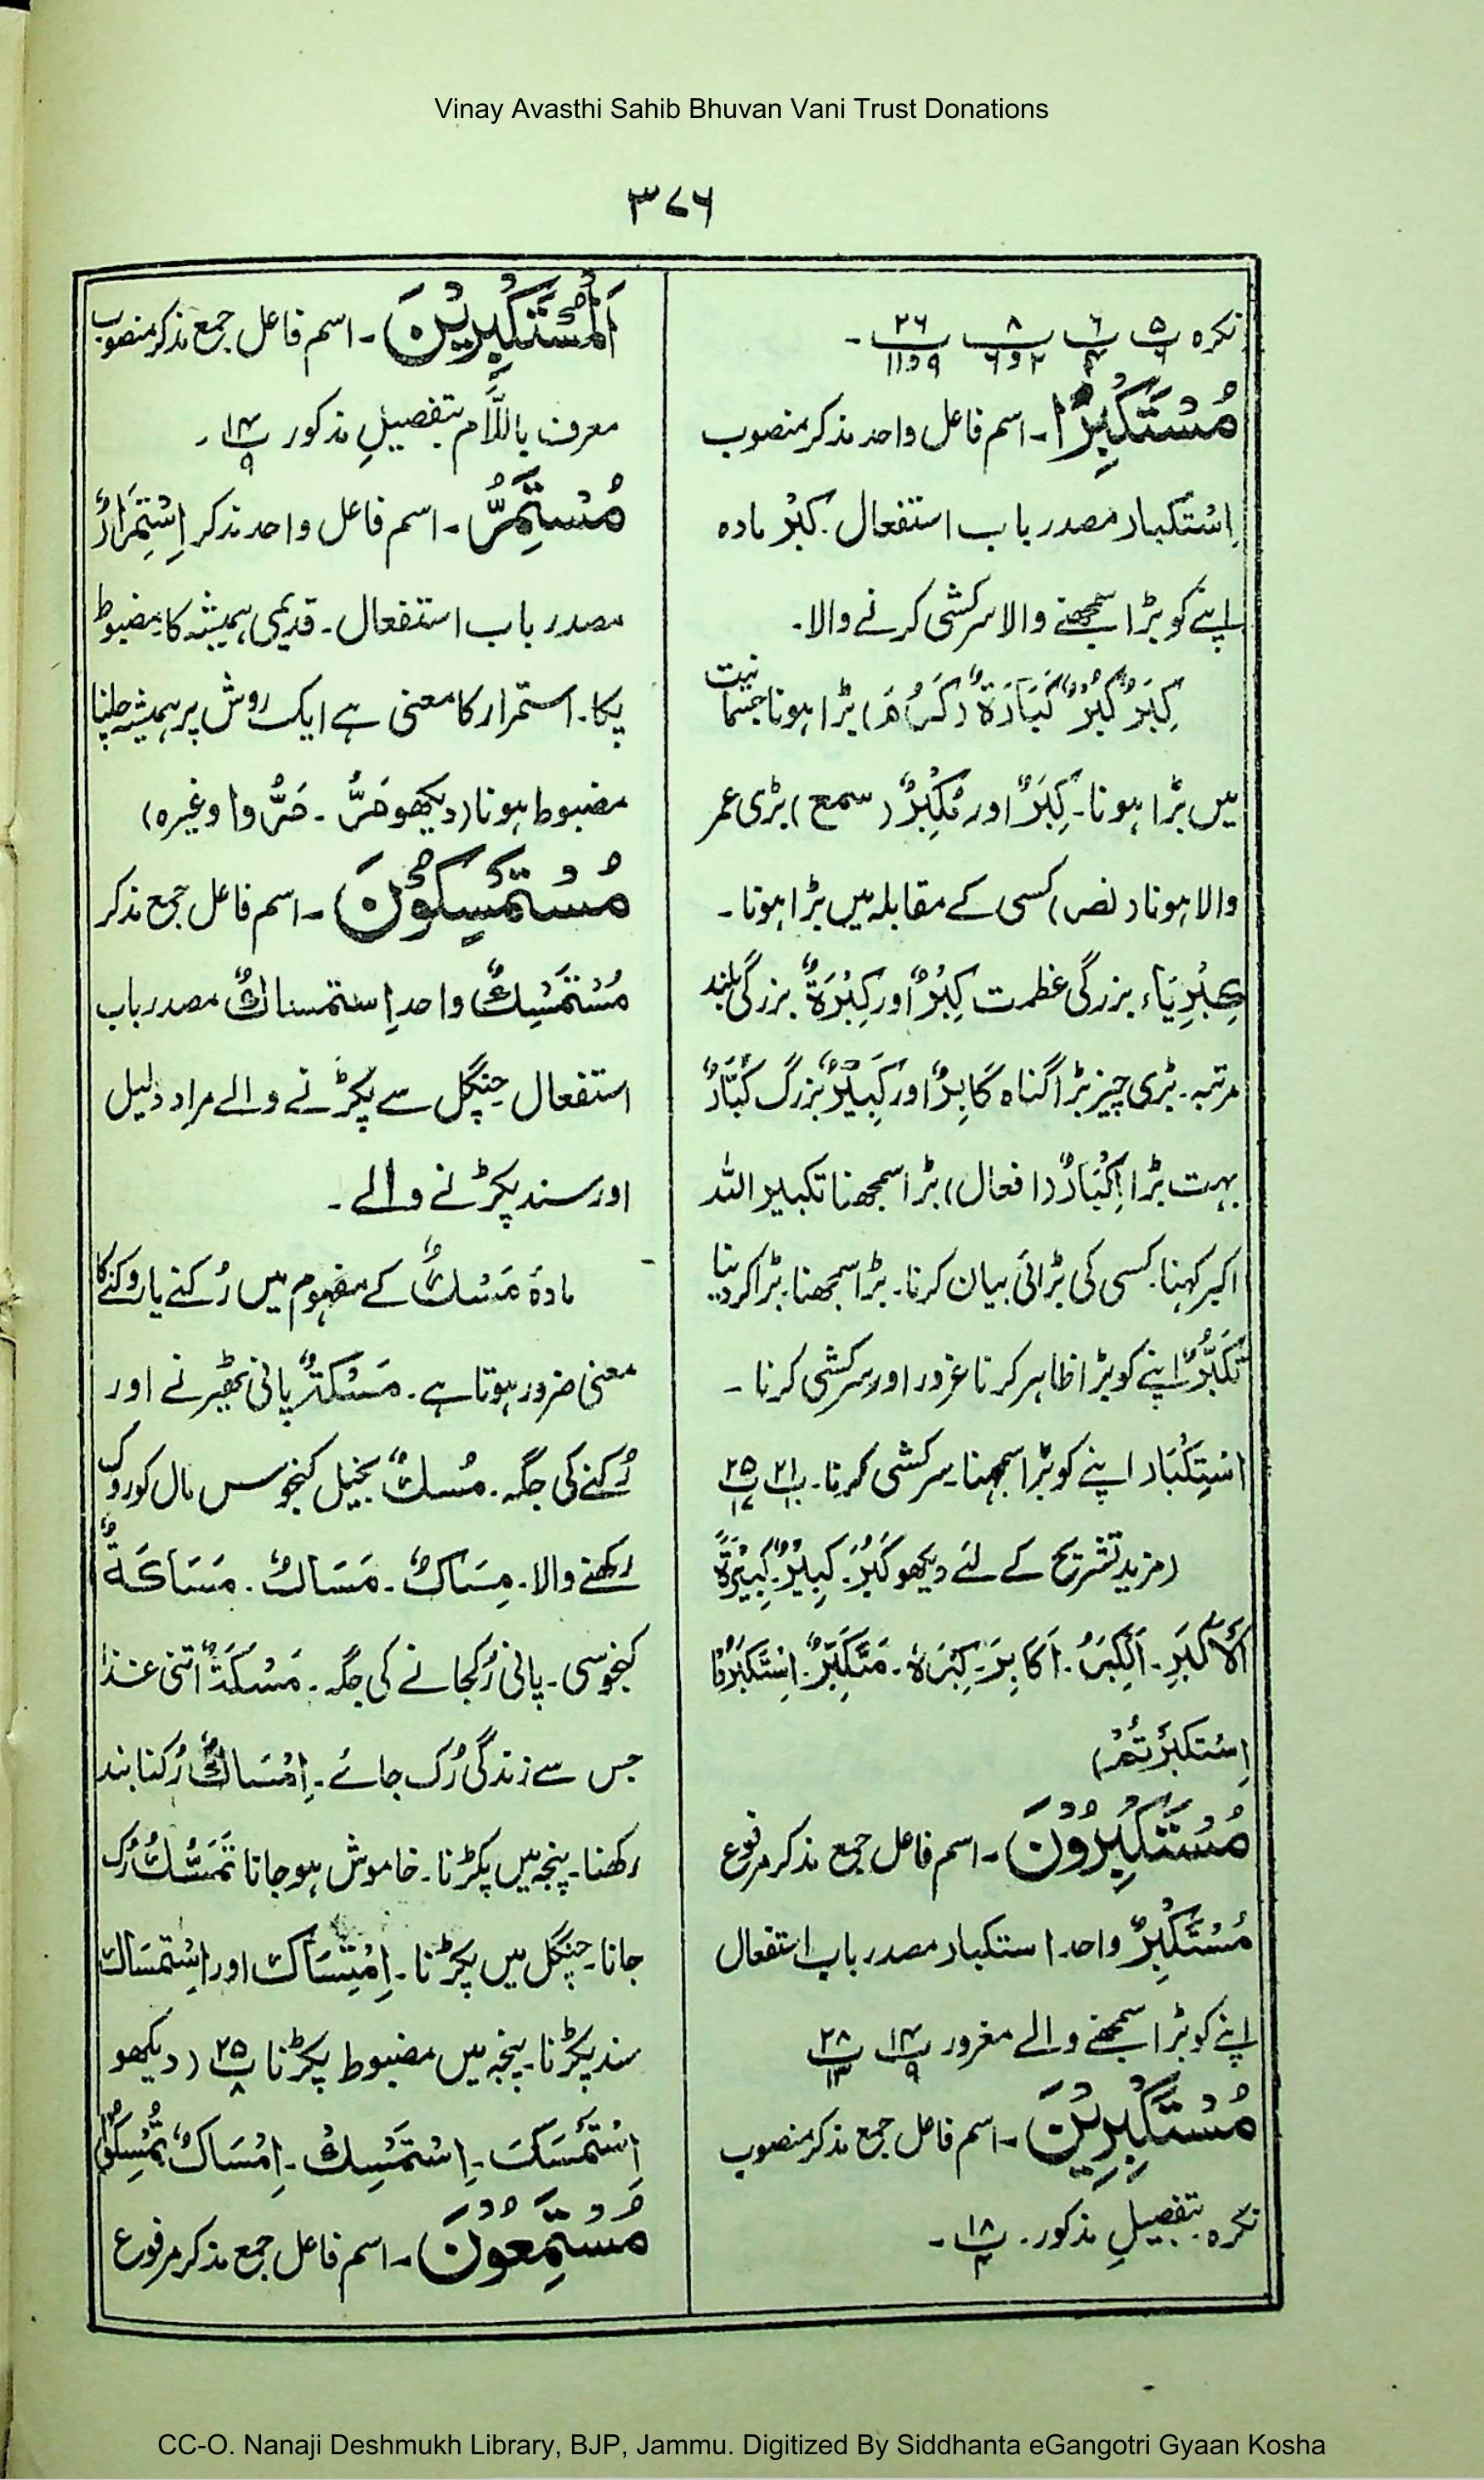 Vinay Avasthi Sahib Bhuvan Vani Trust Donations
۳۷۶
نکرہ پ۵ پ۶ پ۸ ۲و۶ پ۲۶ ۹و۱۱ ۔
مُسْتَکْبِرًا ۔ اسم فاعل واحد مذکر منصوب
اِسْتکبار مصدر باب استفعال ۔ کِبْرٌ مادہ
اپنے کو بڑا سمجھنے والا سرکشی کرنے والا۔
کِبَرٌ کُبْرٌ کَبَارَۃٌ (کَرُمَ) بڑا ہونا جسامت
میں بڑا ہونا۔ کِبَرٌ اور مَکْبِرٌ (سمع) بڑی عمر
والا ہونا (نصر) کسی کے مقابلہ میں بڑا ہونا ۔
کِبْرِیَاء بزرگی عظمت کِبْرٌ اور کِبْرَۃٌ بزرگی بلند
مرتبہ ۔ بڑی چیز بڑا گناہ کَابِرٌ اور کَبِیْرٌ بزرگ کُبَّارٌ
بہت بڑا اِکْبَارٌ (افعال) بڑا سمجھنا تکبیر اللہ
اکبر کہنا۔ کسی کی بڑائی بیان کرنا۔ بڑا سمجھنا۔ بڑا کر دینا
تَکَبُّرٌ اپنے کو بڑا ظاہر کرنا غرور اور سرکشی کرنا ۔
اِسْتِکْبَار اپنے کو بڑا سمجھنا۔ سرکشی کرنا۔ پ۲۱ ۱۱ پ۲۵ ۱۷
(مزید تشریح کے لئے دیکھو کَبُرَ ۔ کَبِیْرٌ ۔ کَبِیْرَۃً
اَلْاَکْبَرِ ۔ اَلْکِبَرُ ۔ اَکَابِرَ ۔ کِبْرَہٗ ۔ مُتَکَبِّرٌ ۔ اِسْتَکْبَرُوْا
اِسْتَکْبَرْتُمْ)
مُسْتَکْبِرُوْنَ ۔ اسم فاعل جمع مذکر مرفوع
مُسْتَکْبِرٌ واحد ۔ استکبار مصدر باب استفعال
اپنے کو بڑا سمجھنے والے مغرور پ۱۴ ۹ پ۲۸ ۱۳
مُسْتَکْبِرِیْنَ ۔ اسم فاعل جمع مذکر منصوب
نکرہ ۔ بتفصیلِ مذکور ۔ پ۱۸ ۴ ۔
اَلْمُسْتَکْبِرِیْنَ ۔ اسم فاعل جمع مذکر منصوب
معرف باللّام بتفصیلِ مذکور پ۱۴ ۹ ۔
مُسْتَمِرٌّ ۔ اسم فاعل واحد مذکر اِسْتِمْرَارٌ
مصدر باب استفعال ۔ قدیمی ہمیشہ کا مضبوط
پکا ۔ استمرار کا معنی ہے ایک روش پر ہمیشہ چلنا
مضبوط ہونا (دیکھو مَرَّ ۔ مَرُّوا وغیرہ)
مُسْتَمْسِکُوْنَ ۔ اسم فاعل جمع مذکر
مُسْتَمْسِکٌ واحد اِستمساکٌ مصدر باب
استفعال چنگل سے پکڑنے والے مراد دلیل
اور سند پکڑنے والے ۔
مادۂ مَسْكٌ کے مفہوم میں رُکنے یا روکنے کا
معنی ضرور ہوتا ہے ۔ مَسْکَۃٌ پانی ٹھیرنے اور
رُکنے کی جگہ ۔ مُسكٌ بخیل کنجوس مال کو روک
رکھنے والا ۔ مِسَاکٌ ۔ مَسَاكٌ ۔ مَسَاکَۃٌ
کنجوسی ۔ پانی رُک جانے کی جگہ ۔ مَسْکَۃٌ اتنی غذا
جس سے زندگی رُک جائے ۔ اِمْسَاكٌ رُکنا بند
رکھنا ۔ پنجہ میں پکڑنا ۔ خاموش ہوجانا تَمَسُّكٌ رُک
جانا ۔ چنگل میں پکڑنا ۔ اِمْتِسَاک اور اِسْتِمْسَاك
سند پکڑنا ۔ پنجہ میں مضبوط پکڑنا پ۲۵ ۸ (دیکھو
اِسْتَمْسَکَ ۔ اِسْتَمْسِكْ ۔ اِمْسَاكٌ تُمْسِکُوْا
مُسْتَمِعُوْنَ ۔ اسم فاعل جمع مذکر مرفوع
CC-O. Nanaji Deshmukh Library, BJP, Jammu. Digitized By Siddhanta eGangotri Gyaan Kosha